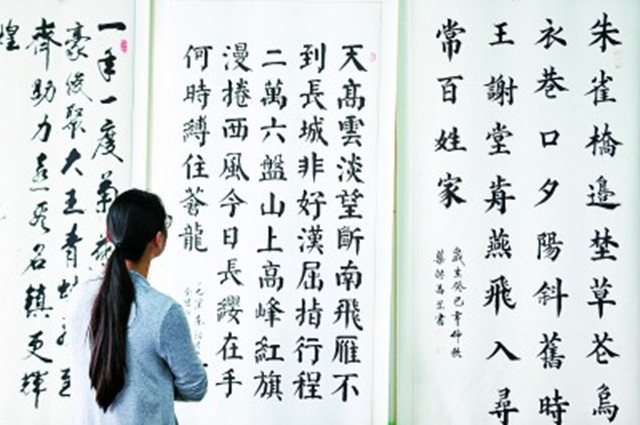 朱雀橋邊埜草芲烏
衣巷口夕陽斜舊時
王謝堂前燕飛入尋
常百姓家
天高雲淡望斷南飛雁不
到長城非好漢屈指行程
二萬六盤山上高峰紅旗
漫捲西風今日長纓在手
何時縛住蒼龍
一年一度菊
豪俊聚大王青
齊助力喜看名鎮更輝
煌